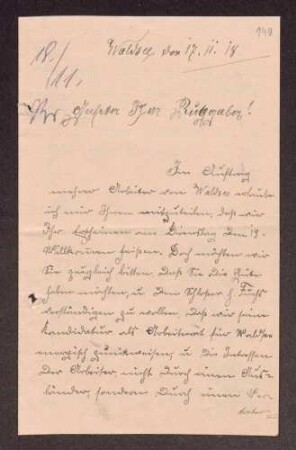 149
18./11.
Waldsee den 17.11.18
Sehr geehrter Herr Ruggaber!
Im Auftrag
mehrer Arbeiter von Waldsee erlaube
ich mir Ihnen mitzuteilen, daß wir
Ihr Erscheinen am Dienstag den 19.
Willkommen heißen. Doch möchten wir
Sie zugleich bitten, daß Sie die Güte
haben möchten, u dem Schlosser H. Fuchs
verständigen zu wollen, daß wir seine
Kandidatur als Arbeiterrat für Waldsee
energisch zurückweisen, u die Interessen
der Arbeiter, nicht durch einen Aus-
länder, sondern durch einen Ver-